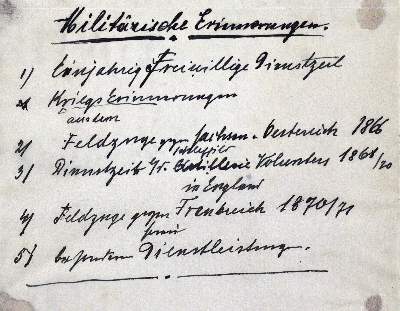 Militärische Erinnerungen.
1) Einjährig Freiwillige Dienstzeit
Kriegs Erinnerungen
aus dem
2) Feldzuge gegen Sachsen u. Oesterreich 1866
3) Dienstzeit Artillerie Volunteers 1868/70
in England
4) Feldzuge gegen Frankreich 1870/71
5) Dienstleistung.